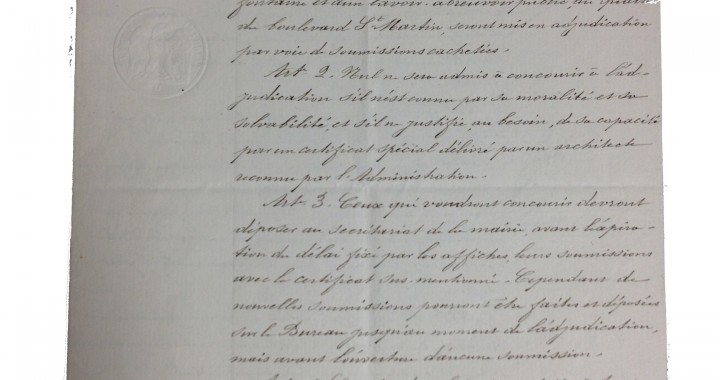 fontaine et d'un lavoir-abreuvoir public, au quartier
du boulevard St Martin, seront mis en adjudication
par voie de soumissions cachetées.
Art. 2. Nul ne sera admis à concourir à l'ad-
judication s'il n'est connu par sa moralité et sa
solvabilité, et s'il ne justifie, au besoin, de sa capacité
par un certificat spécial délivré par un architecte
reconnu par l'Administration.
Art. 3. Ceux qui voudront concourir devront
déposer au secrétariat de la mairie, avant l'expira-
tion du délai fixé par les affiches, leurs soumissions
avec le certificat sus-mentionné. Cependant de
nouvelles soumissions pourront être faites et déposées
sur le Bureau jusqu'au moment de l'adjudication,
mais avant l'ouverture d'aucune soumission.